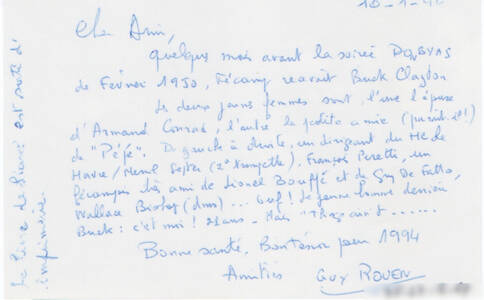 10-1-94
Cher Ami,
quelques mois avant la soirée DON BYAS
de Février 1950, Fécamp recevait Buck Clayton
les deux jeunes femmes sont, l'une l'épouse
d'Armand Conrad, l'autre la petite amie (paraît-il!)
de "Pépé". De gauche à droite, un dirigeant du HC de
Havre/René (2e trompette), François Peretti, un
fécampois très ami de Lionel Bouffé et de Guy De Fatto,
Wallace Bishop (drm) ... Ouf! Le jeune homme derrière
Buck: c'est moi! 21 ans - Mais "Things ain't ......
Bonne santé, Bontésour pour 1994
Amitiés GUY ROUEN
Le livre de Pierre est sorti d'
imprimerie.